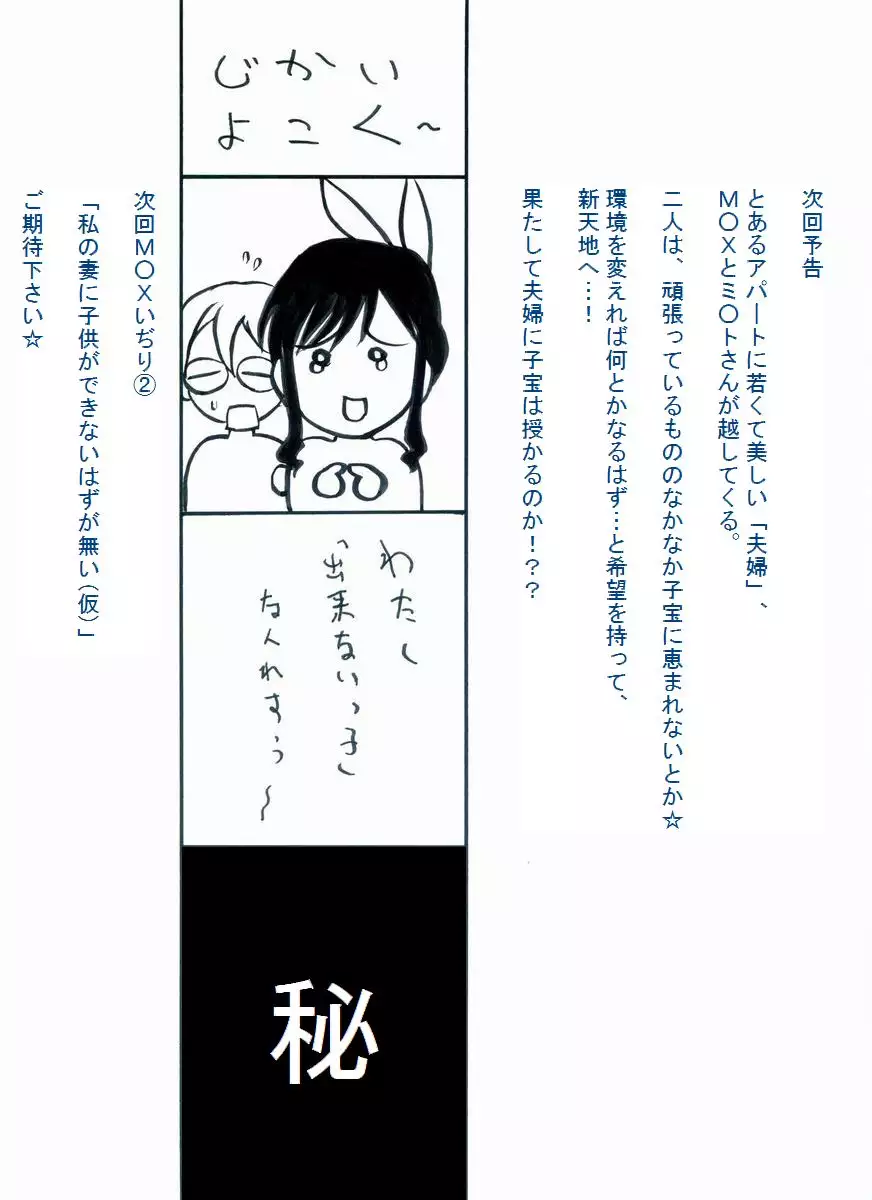 次回予告
とあるアパートに若くて美しい「夫婦」、
M〇Xとミ〇トさんが越してくる。
二人は、頑張っているもののなかなか子宝に恵まれないとか☆
環境を変えれば何とかなるはず…と希望を持って、
新天地へ…！
果たして夫婦に子宝は授かるのか！？？
じかい
よこく～
わたし
「出来ないっ子」
なんれすぅ～
秘
次回M〇Xいぢり②
「私の妻に子供ができないはずが無い（仮）」
ご期待下さい☆